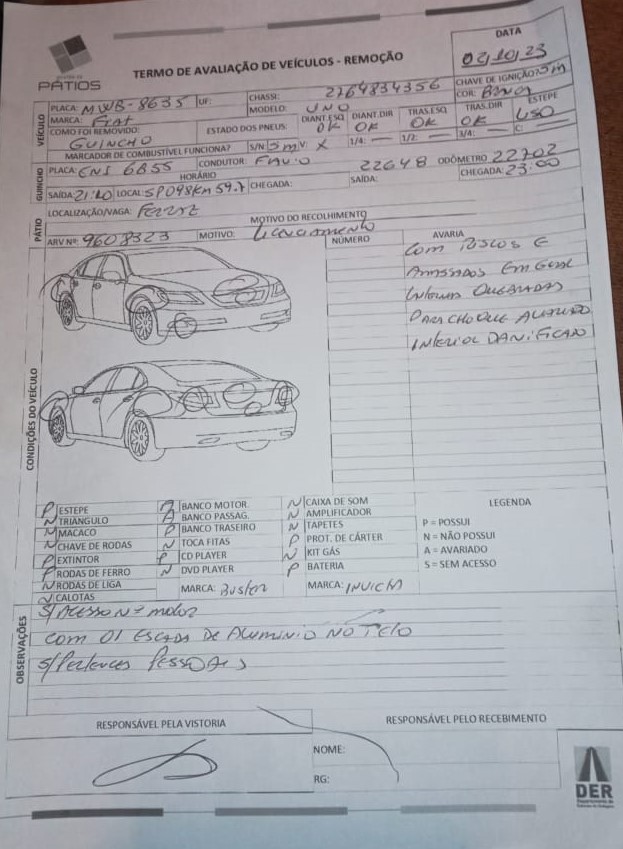 PÁTIOS
TERMO DE AVALIAÇÃO DE VEÍCULOS - REMOÇÃO
DATA
02/10/23
VEÍCULO
PLACA: MWB-8635 UF: CHASSI: 2264834356 CHAVE DE IGNIÇÃO: Sim
MARCA: Fiat MODELO: UNO COR: Branca
COMO FOI REMOVIDO: GUINCHO ESTADO DOS PNEUS: DIANT.ESQ OK DIANT.DIR OK TRAS.ESQ OK TRAS.DIR OK ESTEPE USO
MARCADOR DE COMBUSTÍVEL FUNCIONA? S/N: Sim V: X 1/4: — 1/2: — 3/4: — C: —
GUINCHO
PLACA: ENS 6B55 CONDUTOR: FLAVIO 22648 ODÔMETRO 22702
HORÁRIO
SAÍDA: 21:20 LOCAL: SP098 Km 59.7 CHEGADA: SAÍDA: CHEGADA: 23:00
PÁTIO
LOCALIZAÇÃO/VAGA:
MOTIVO DO RECOLHIMENTO
ARV Nº: 9608323 MOTIVO: Licenciamento
CONDIÇÕES DO VEÍCULO
NÚMERO AVARIA
COM RISCOS E
AMASSADOS EM GERAL
QUEBRADAS
PARACHOQUE AVARIADO
INTERIOR DANIFICADO
P ESTEPE
N TRIANGULO
N MACACO
N CHAVE DE RODAS
P EXTINTOR
P RODAS DE FERRO
N RODAS DE LIGA
N CALOTAS
BANCO MOTOR.
A BANCO PASSAG.
P BANCO TRASEIRO
N TOCA FITAS
P CD PLAYER
N DVD PLAYER
MARCA: Buster
N CAIXA DE SOM
N AMPLIFICADOR
N TAPETES
P PROT. DE CÁRTER
N KIT GÁS
P BATERIA
MARCA:
LEGENDA
P = POSSUI
N = NÃO POSSUI
A = AVARIADO
S = SEM ACESSO
OBSERVAÇÕES
S/ ACESSO Nº motor
COM 01 ESCADA DE ALUMINIO NO TETO
S/ Pertences PESSOAIS
RESPONSÁVEL PELA VISTORIA
RESPONSÁVEL PELO RECEBIMENTO
NOME:
RG:
DER